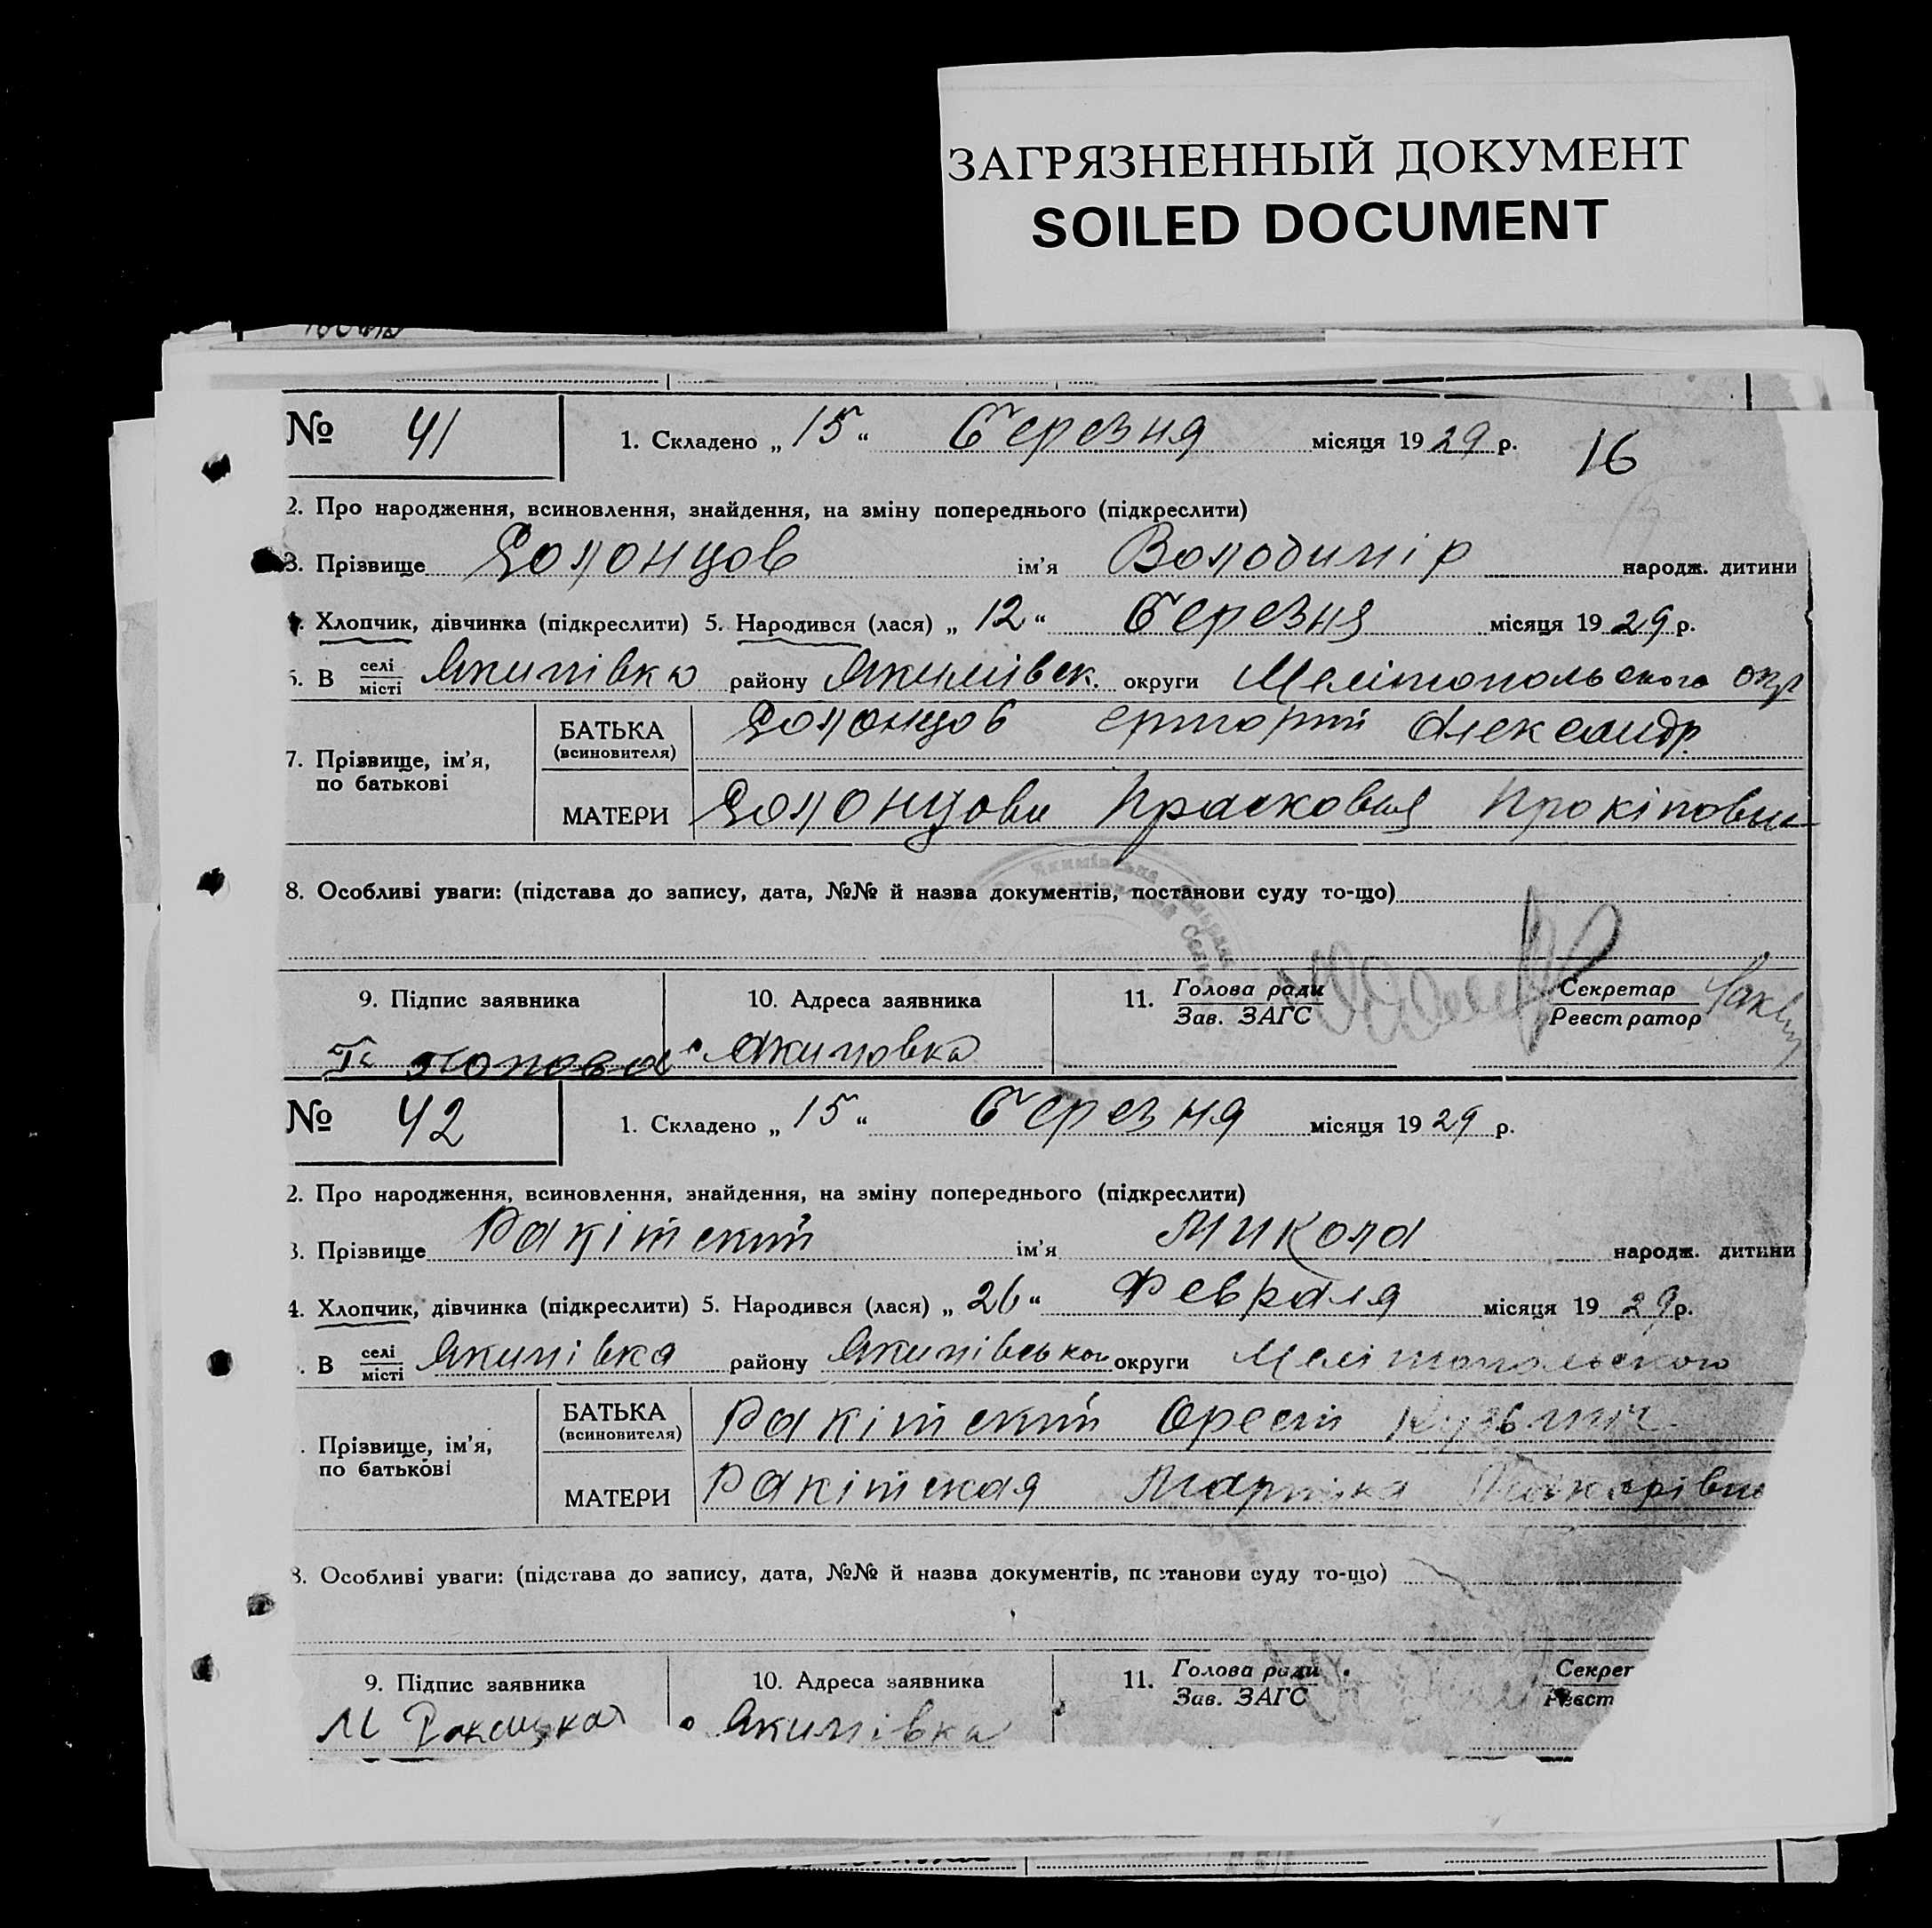 ЗАГРЯЗНЕННЫЙ ДОКУМЕНТ
SOILED DOCUMENT
№ 41 1. Складено „ 15 “ Березня місяця 19 29 р. 16
2. Про народження, всиновлення, знайдення, на зміну попереднього (підкреслити)
3. Прізвище ім’я Володимір народж. дитини
Хлопчик, дівчинка (підкреслити) 5. Народився (лася) „ 12 “ Березня місяця 19 29 р.
В селі/місті Якимівка району Якимівськ. округи Мелітопольского окр
7. Прізвище, ім’я, по батькові
БАТЬКА (всиновителя) Александр
МАТЕРИ Прасковья Прокіповна
8. Особливі уваги: (підстава до запису, дата, №№ й назва документів, постанови суду то-що)
9. Підпис заявника 10. Адреса заявника 11. Голова ради/Зав. ЗАГС Секретар/Реєстратор
Якимовка
№ 42 1. Складено „ 15 “ Березня місяця 19 29 р.
2. Про народження, всиновлення, знайдення, на зміну попереднього (підкреслити)
3. Прізвище Ракітский ім’я Микола народж. дитини
4. Хлопчик, дівчинка (підкреслити) 5. Народився (лася) „ 26 “ Февраля місяця 19 29 р.
В селі/місті Якимівка району Якимівського округи Мелітопольского
Прізвище, ім’я, по батькові
БАТЬКА (всиновителя) Ракітский Орест Кузьмич
МАТЕРИ Ракітская Макарівна
8. Особливі уваги: (підстава до запису, дата, №№ й назва документів, постанови суду то-що)
9. Підпис заявника 10. Адреса заявника 11. Голова ради/Зав. ЗАГС Секрет/Реєст
М Якимівка